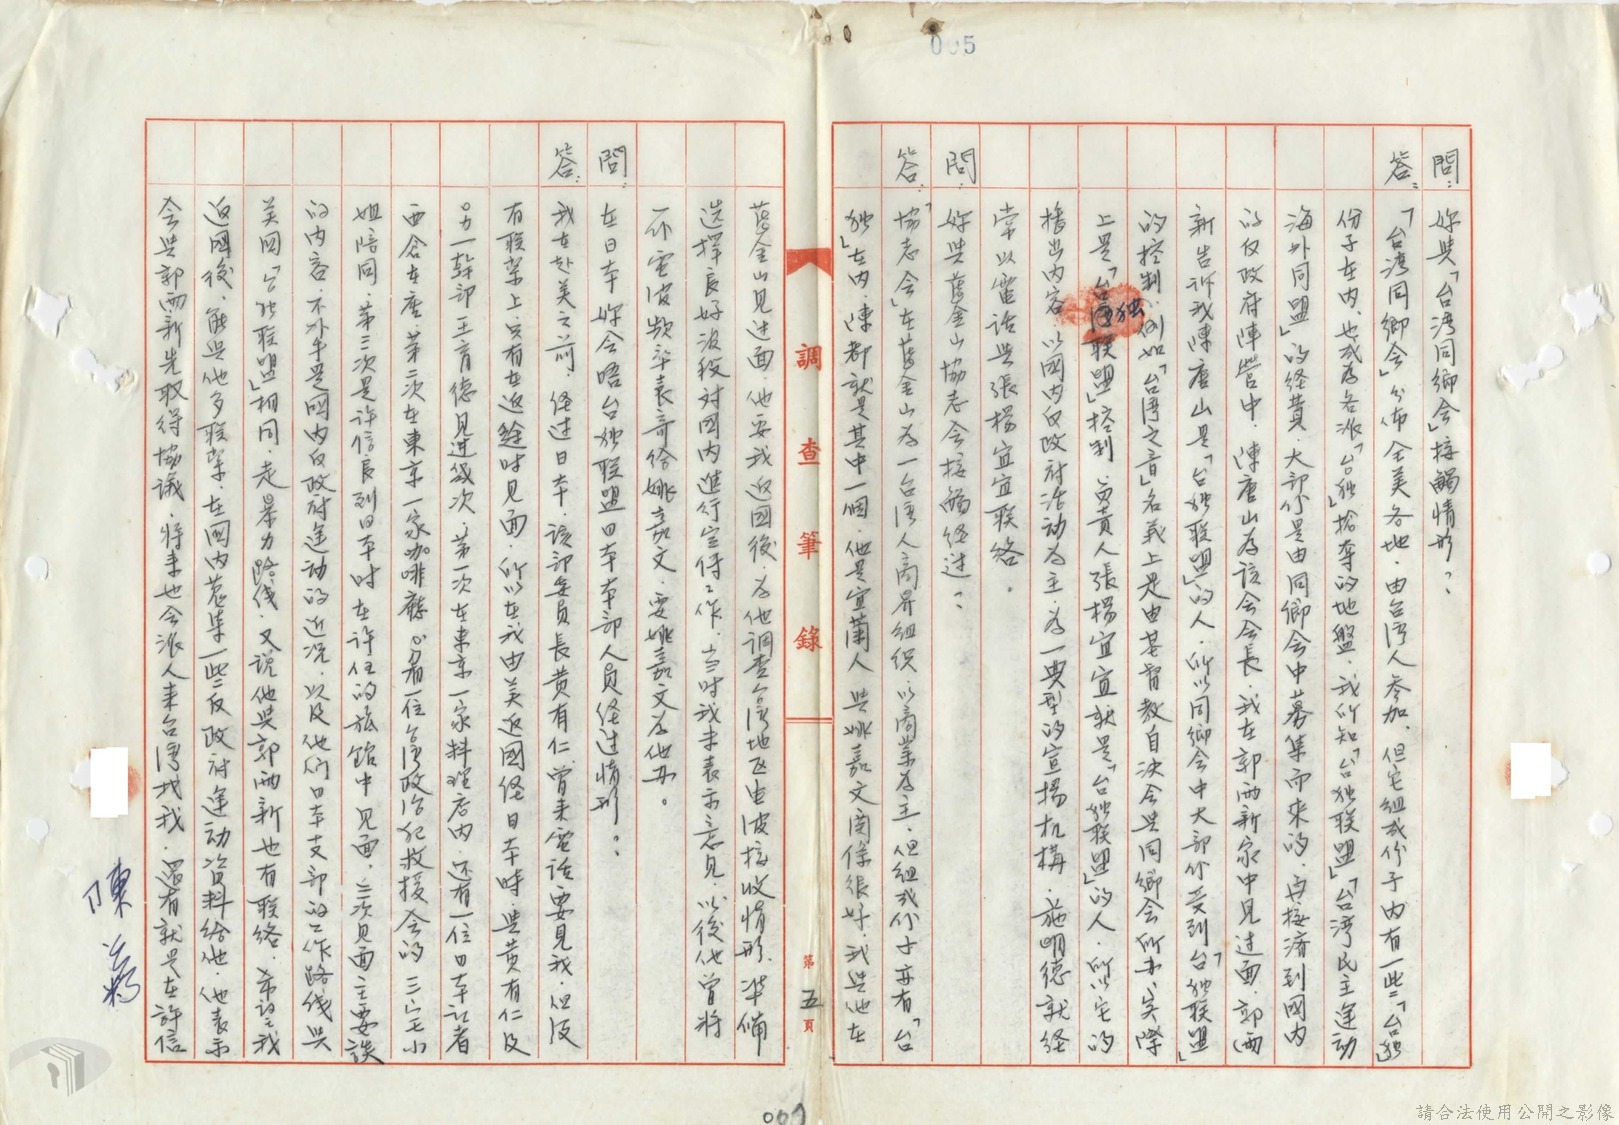 005
問：妳與「台湾同鄉会」接觸情形？
答：「台湾同鄉会」分佈全美各地，由台湾人参加，但它組成份子内有一些「台独」
份子在内，也成為各派「台独」搶奪的地盤，我所知「台独联盟」「台湾民主運动
海外同盟」的経費，大部份是由同鄉会中募集而來的，再接濟到國内
的反政府陣營中，陳唐山為該会会長，我在郭雨新家中見过面，郭雨
新告訴我陳唐山是「台独联盟」的人，所以同鄉会中大部份受到「台独联盟」
的控制，例如「台湾之音」名義上是由基督教自决会與同鄉会所办，实際
上是「台独联盟」控制，負責人張楊宜宜就是「台独联盟」的人，所以它的
播出内容以國内反政府活动為主，為一典型的宣揚机構，施明德就経
常以電話與張楊宜宜联络。
問：妳與舊金山協志会接觸経过？
答：「協志会」在舊金山為一台湾人商界組织，以商業為主，但組成份子亦有「台
独」在内，陳都就是其中一個，他是宜蘭人，與姚嘉文関係很好，我與他在
調查筆錄
第五頁
舊金山見过面，他要我返國後，為他調查台湾地区電波接收情形，準備
选擇良好波段对國内進行宣传工作，当时我未表示意見，以後他曾將
一份電波頻率表寄给姚嘉文，要姚嘉文為他办。
問：在日本妳会晤台独联盟日本本部人員経过情形？
答：我在赴美之前，経过日本，該部委員長黄有仁曾来電話要見我，但没
有联絜上，只有在返途时見面，所以在我由美返國経日本時，與黄有仁及
另一幹部王育德見过幾次，第一次在東京一家料理店内，还有一位日本記者
西倉在座，第二次在東京一家咖啡廳，另有一位台湾政治犯救援会的三宅小
姐陪同，第三次是許信良到日本时，在許住的旅館中見面，三次見面主要談
的内容，不外乎是國内反政府運动的近况，以及他们日本支部的工作路线與
美國「台独联盟」相同，走暴力路线，又説他與郭雨新也有联络，希望我
返國後，能與他多联絜，在國内蒐集一些反政府運动資料给他，他表示
会與郭雨新先取得協議，將來也会派人来台湾找我，還有就是在許信
陳菊
000
請合法使用公開之影像